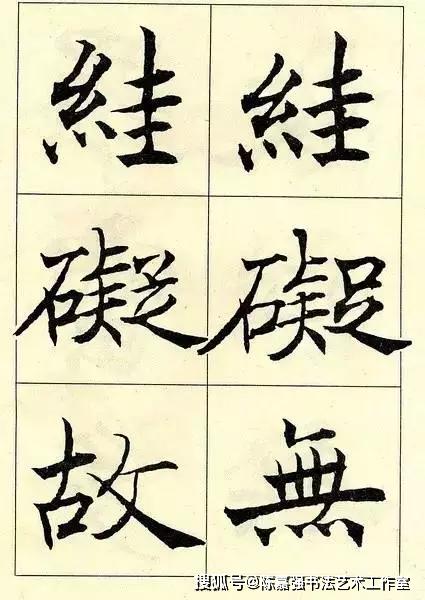 絓礙無
絓礙故
搜狐号@陈嘉强书法艺术工作室